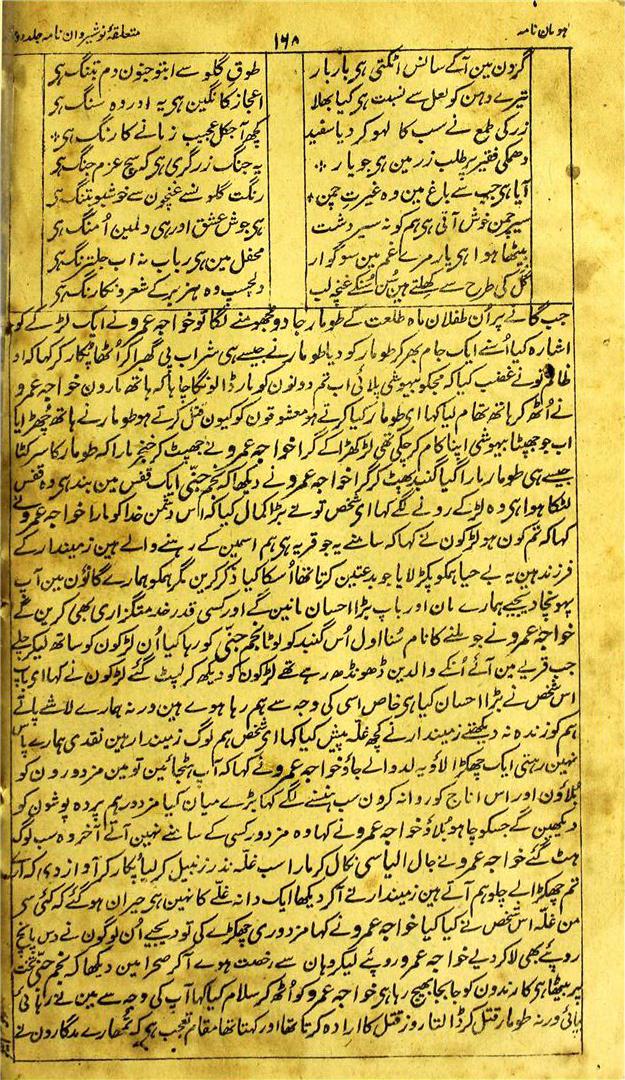 ہومان نامہ
۱۶۸
متعلقۂ نوشیروان نامہ جلد دوم
گردن مین آکے سانس اٹکتی ہی بار بار
طوق گلو سے ابتو جنون دم بتنگ ہی
تیرے دہن کو لعل سے نسبت ہی کیا بھلا
اعجاز کا نگین ہی یہ اور وہ سنگ ہی
زر کی طمع نے سب کا لہو کر دیا سفید
کچھ آجکل عجیب زمانے کا رنگ ہی
دھمکی فقیر پر طلب زر مین ہی جو یار
یہ جنگ زرگری ہی کہ سچ عزم جنگ ہی
آیا ہی جب سے باغ مین وہ غیرت چمن
رنگت گلونسے غنچون سے خوشبو بتنگ ہی
سیر چمن خوش آتی ہی ہم کو نہ سیر دشت
ہی جوش عشق اور ہی دلمین اُمنگ ہی
بیٹھا ہوا ہی یار مرے غم مین سوگوار
محفل مین ہی رباب نہ اب جلترنگ ہی
گل کی طرح سے کھلتے ہین سُن سُنکے غنچہ لب
دلچسپ وہ ہزبر کے شعرونکا رنگ ہی
جب گانے پر آن طفلان ماہ طلعت کے طومار جادو جھومنے لگا تو خواجہ عمرو نے ایک لڑکے کو
اشارہ کیا اُسنے ایک جام بھر کر طومار کو دیا طومار نے جیسے ہی شراب پی گھبرا کر اُٹھا پکار کر کہا کہ او
ظالمو تونے غضب کیا کہ مجکو بیہوشی پلائی اب تم دونون کو مار ڈالونگا چاہا کہ ہاتھ مارون خواجہ عمرو
نے اُٹھ کر ہاتھ تھام لیا کہا ای طومار کیا کرتے ہو معشوقون کو کیون قتل کرتے ہو طومار نے ہاتھ چھڑایا
اب جو جھپٹا بیہوشی اپنا کام کر چکی تھی لڑکھڑا کے گرا خواجہ عمرو نے جھپٹ کر خنجر مارا کہ طومار کا سر کٹا
جیسے ہی طومار مارا گیا گنبد پھٹ کر گرا خواجہ عمرو نے دیکھا کہ نجم جنّی ایک قفس مین بند ہی وہ قفس
لٹکا ہوا ہی وہ لڑکے رونے لگے کہا ای شخص تونے بڑا کمال کیا کہ اُس دشمن خدا کو مارا خواجہ عمرو نے
کہا کہ تم کون ہو لڑکون نے کہا کہ سامنے یہ جو قریہ ہی ہم اسمین کے رہنے والے ہین زمیندار کے
فرزند ہین یہ بے حیا ہمکو پکڑ لایا جو بدعتین کرتا تھا اُسکا کیا ذکر کرین مگر ہمکو ہمارے گانؤن مین آپ
پہونچا دیجیے ہمارے مان اور باپ بڑا احسان مانین گے اور کسی قدر خدمتگزاری بھی کرین گے
خواجہ عمرو نے جو ملنے کا نام سُنا اول اُس گنبد کو لوٹا نجم جنّی کو رہا کیا اُن لڑکون کو ساتھ لیکر چلے
جب قریے مین آئے اُنکے والدین ڈھونڈھ رہے تھے لڑکون کو دیکھ کر لپٹ گئے لڑکون نے کہا ای باپ
اس شخص نے بڑا احسان کیا ہی خاص اسی کی وجہ سے ہم رہا ہوے ہین ورنہ ہمارے لاشے پاتے
ہم کو زندہ نہ دیکھتے زمیندار نے کچھ غلّہ پیش کیا کہا ای شخص ہم لوگ زمیندار ہین نقدی ہمارے پاس
نہین رہتی ایک چھکڑا لاؤ یہ لدوالے جاؤ خواجہ عمرو نے کہا کہ آپ ہٹجائین تو مین مزدورون کو
بُلاؤن اور اس اناج کو روانہ کرون سب ہنسنے لگے کہا بڑے میان کیا مزدور ہم پردہ پوشون کو
دیکھین گے جسکو چاہو بُلاؤ خواجہ عمرو نے کہا وہ مزدور کسی کے سامنے نہین آتے آخر وہ سب لوگ
ہٹ گئے خواجہ عمرو نے جال الیاسی نکال کر مارا سب غلّہ نذر زنبیل کر لیا پکار کر آواز دی کہ آؤ
تم چھکڑا لے چلو ہم آتے ہین زمیندار نے آ کر دیکھا ایک دانہ غلّے کا نہین ہی حیران ہو گئے کہ کئی سی
من غلّہ اس شخص نے کیا کیا خواجہ عمرو نے کہا مزدوری چھکڑے کی تو دیجیے اُن لوگون نے دس پانچ
روپے بھی لا کر دیے خواجہ عمرو روپئے لیکر وہان سے رخصت ہوے آ کر صحرا مین دیکھا کہ نجم جنّی تخت
پر بیٹھا ہی کارندون کو جا بجا بھیج رہا ہی خواجہ عمرو کو اُٹھ کر سلام کیا کہا آپ کی وجہ سے مین نے رہائی
پائی ورنہ طومار قتل کر ڈالتا روز قتل کا ارادہ کرتا تھا اور کہتا تھا مقام تعجب ہی کہ تمھارے مددگارون نے